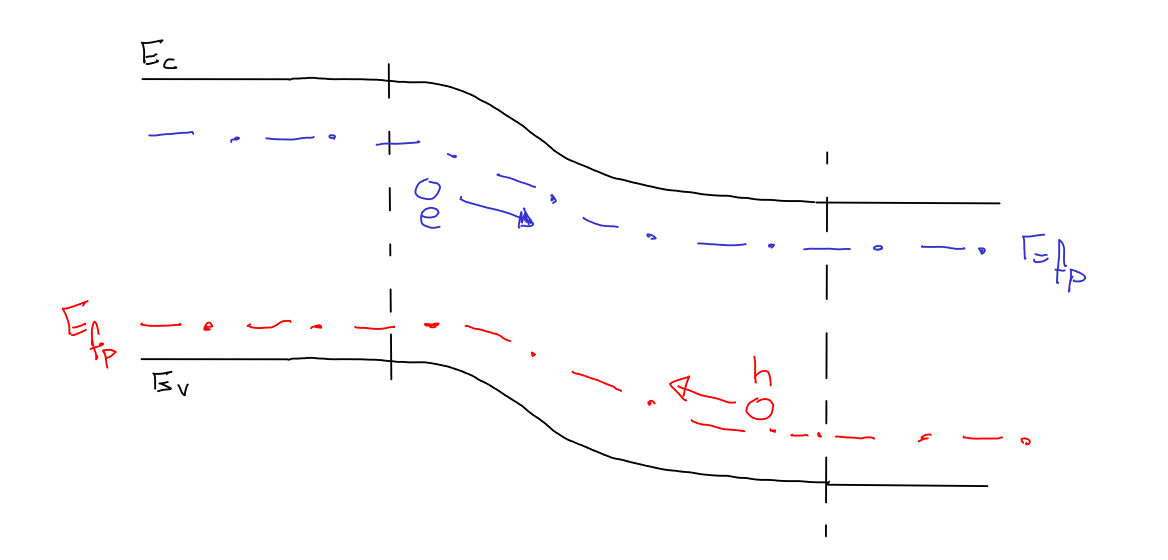 Ec
e
Efp
Efp
h
Ev